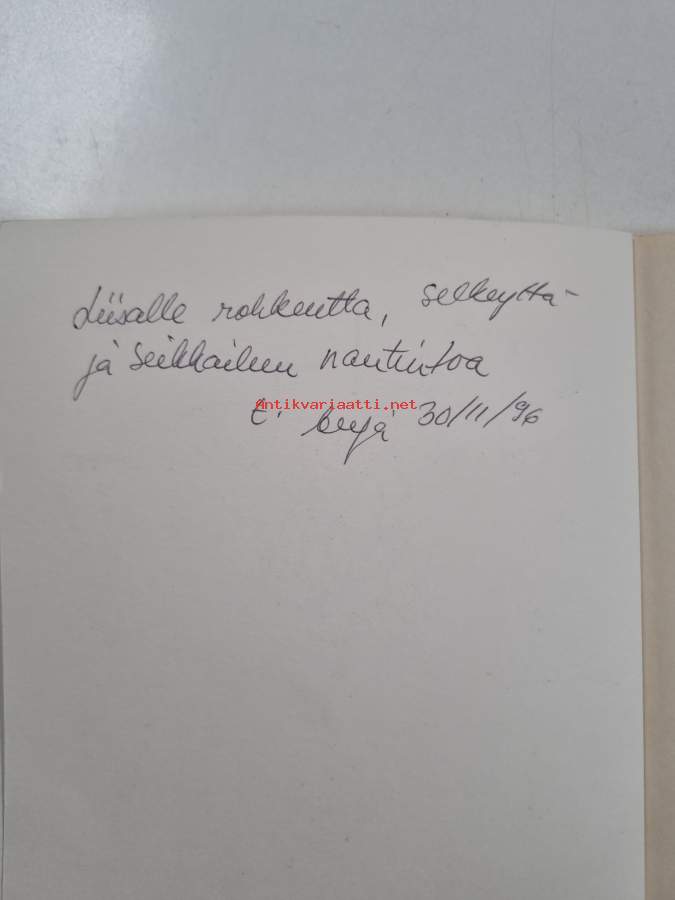 Liisalle rohkeutta, selkeyttä
ja seikkailun nautintoa
Antikvariaatti.net
30/11/96